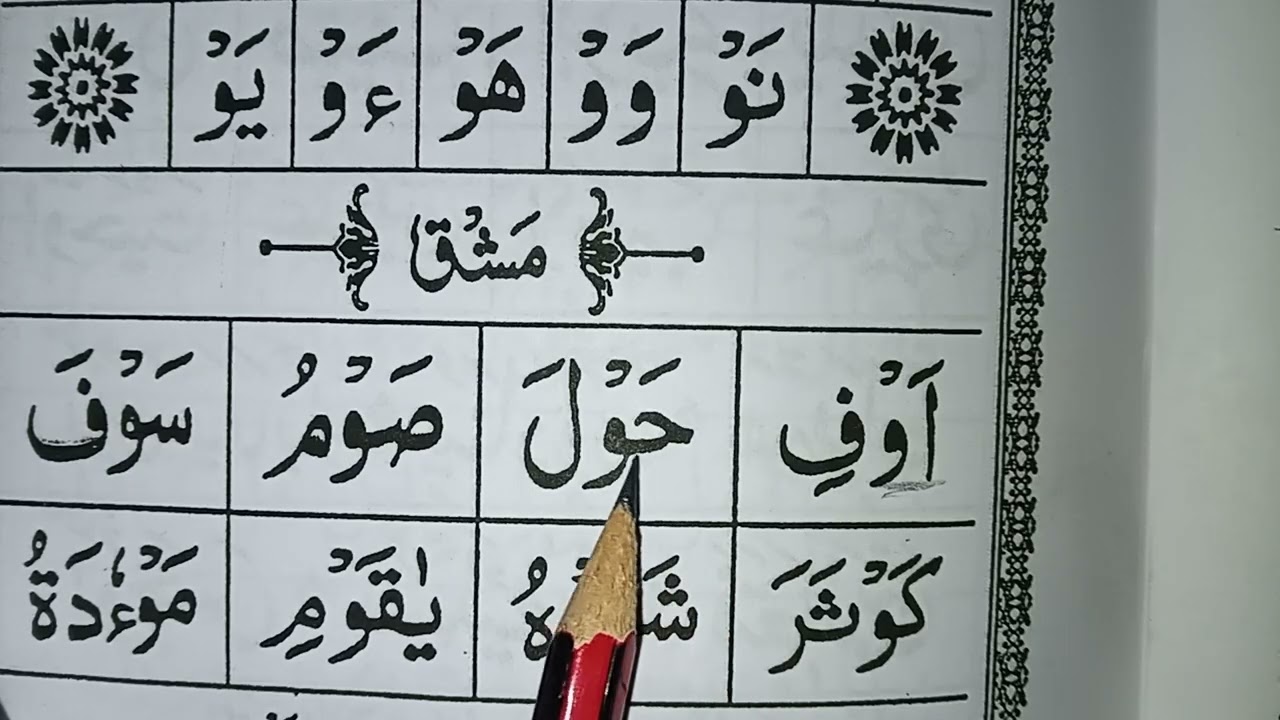 نَوْ وَوْ هَوْ ءَوْ يَوْ
مَشْق
اَوْفِ حَوْلَ صَوْمُ سَوْفَ
كَوْثَرَ يٰقَوْمِ مَوْءٗدَةُ